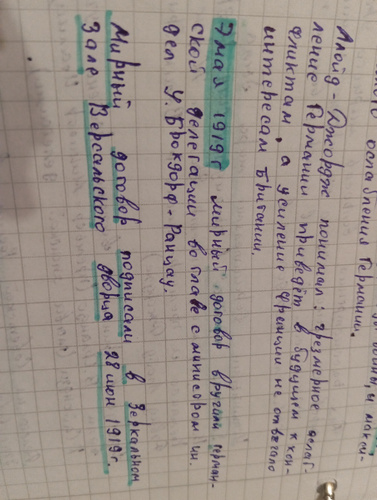 ослабления Германии.
Ллойд-Джордж понимал: чрезмерное ослаб
ление Германии приведёт в будущем к кон-
фликтам, а усиление Франции не отвечало
интересам Британии.
7 мая 1919г мирный договор вручили герман-
ской делегации во главе с министром ин.
дел У. Брокдорф-Ранцау.
Мирный договор подписали в Зеркальном
Зале Версальского дворца 28 июн 1919г